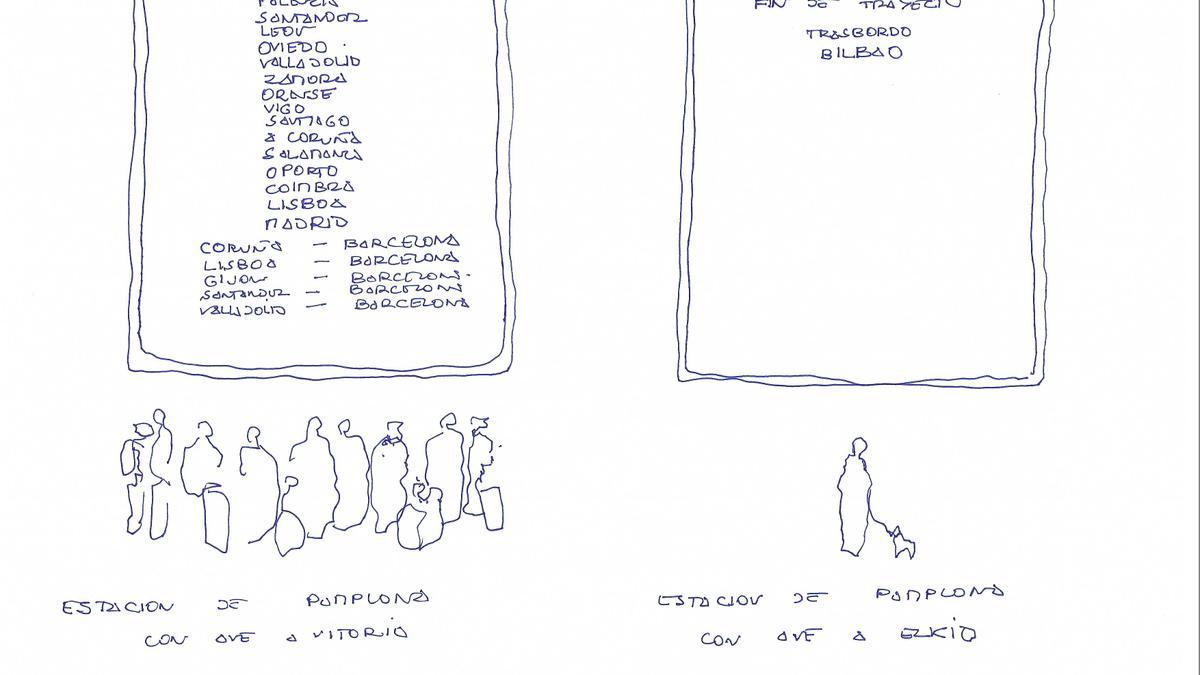 PALENCIA
SANTANDER
LEON
OVIEDO
VALLADOLID
ZAMORA
ORENSE
VIGO
SANTIAGO
A CORUÑA
SALAMANCA
OPORTO
COIMBRA
LISBOA
MADRID
CORUÑA — BARCELONA
LISBOA — BARCELONA
GIJON — BARCELONA
SANTANDER — BARCELONA
VALLADOLID — BARCELONA
ESTACION DE PAMPLONA
CON AVE A VITORIA
FIN DE TRAYECTO
TRASBORDO
BILBAO
ESTACION DE PAMPLONA
CON AVE A EZKIO